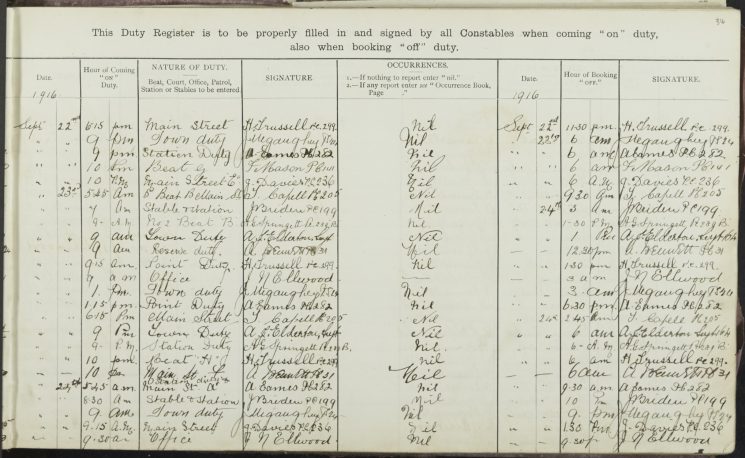 34
This Duty Register is to be properly filled in and signed by all Constables when coming "on" duty,
also when booking "off" duty.
Date. Hour of Coming "on" Duty. NATURE OF DUTY. Beat, Court, Office, Patrol, Station or Stables to be entered. SIGNATURE. OCCURRENCES. 1.—If nothing to report enter "nil." 2.—If any report enter see "Occurrence Book, Page ." Date. Hour of Booking "off." SIGNATURE.
1916 1916
Sept 22nd 6.15 pm Main Street H. Trussell P.C. 299. Nil Sept 22d 11.30 pm. H. Trussell P.C. 299.
" " 9 pm Town duty J Megaughey Nil " 22d 6 am J Megaughey
" " 9 pm Station Duty A Eames Pc 282 Nil " " 6 am A Eames Pc 282
" " 10 Beat F. Mason Nil " " 6 am F. Mason
" " 10 P.M. Main Street J. Davies P.C. 236 Nil " " 6 A.M. J. Davies P.C. 236
" 23d 5.45 am Beat T. Capell Pc 205 Nil " " 9 30 T. Capell Pc 205
" " 7 am Stable & Station J Briden P C 199 Nil " 24th 3 am J Briden P C 199
" " 9- A.M. No 2 Beat B. H. G. Springett nil " " 1-30 P.M. H. G. Springett
" " 9 am Town Duty A. J. Elderton Nil " " 1 A. J. Elderton
" " 9 am Reserve duty. Nil " " 12.30 pm
" " 9.15 am. Point Duty H. Trussell P.C. 299. Nil " " 1.30 pm H. Trussell P.C. 299.
" " 9 am Office J N Ellwood " " 3 am J N Ellwood
" " 1 pm Town duty J Megaughey Nil " " 3- am J Megaughey
" " 1.15 pm. Point Duty A Eames Pc 282 Nil " " 6.30 pm. A Eames Pc 282
" " 6.15 P.M. Main Street T. Capell Pc 205 Nil " 24th 2.45 am T. Capell Pc 205
" " 9 Pm Town Duty A. J. Elderton Nil " " 6 am A. J. Elderton
" " 9- P.M. Station Duty H. G. Springett Nil. " " 6- A.M H. G. Springett
" " 10 pm. Beat H. Trussell P.C. 299. nil " " 6 am H. Trussell P.C. 299.
" " 10 pm Main St. Nil " " 6 am
" 24th 5.45 a.m. Main St A Eames Pc 282 nil " " 9.30 a.m. A Eames Pc 282
" " 8.30 am Stable & Station J Briden P C 199 Nil " " 10 Pm J Briden P C 199
" " 9 am. Town duty J Megaughey Nil " " 9 pm J Megaughey
" " 9.15 A.M. Main Street J. Davies P.C. 236 Nil " " 1.30 P.M. J. Davies P.C. 236
" " 9.30 am Office J N Ellwood Nil " " 9.30 J N Ellwood